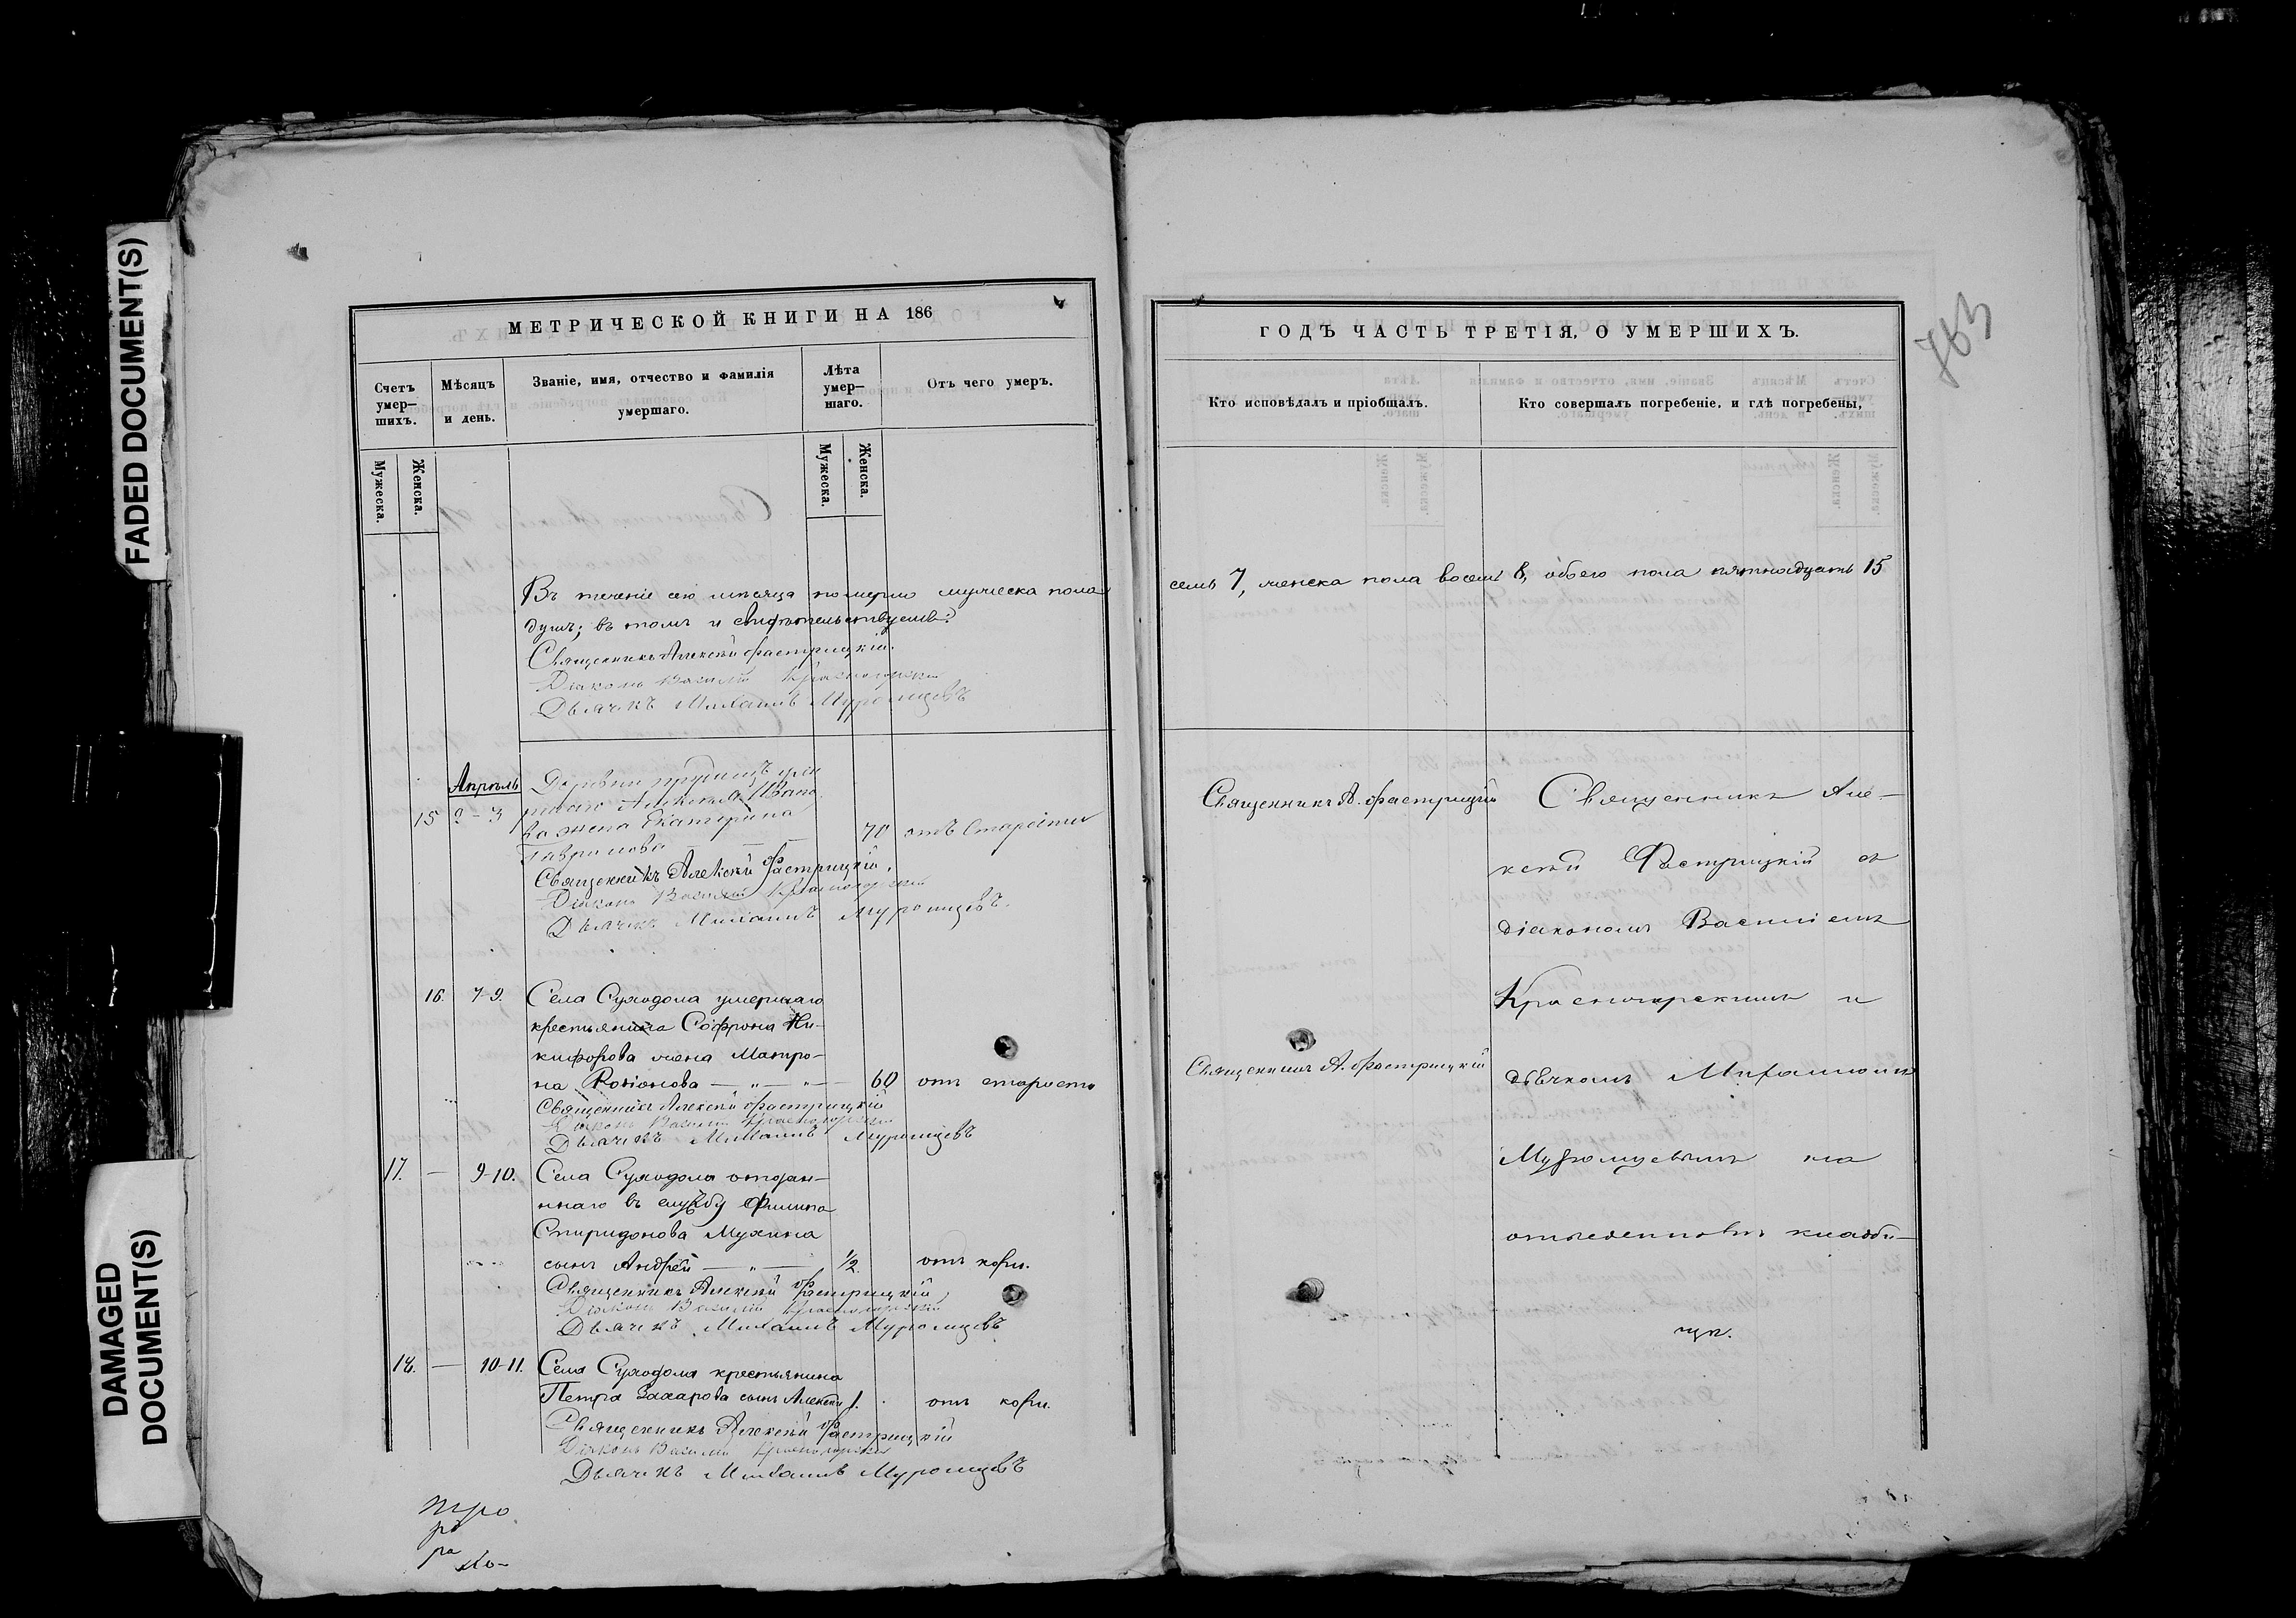 FADED DOCUMENT(S)
DAMAGED DOCUMENT(S)
МЕТРИЧЕСКОЙ КНИГИ НА 186
Счетъ умер—шихъ.
Мѣсяцъ и день.
Званіе, имя, отчество и фамилія умершаго.
Лѣта умер—шаго.
Отъ чего умеръ.
Мужеска.
Женска.
Мужеска.
Женска.
Въ теченіе сего мѣсяца померло мужеска пола
душъ; въ томъ и свидѣтельствуемъ:
Священникъ Алексѣй Фастрицкій.
Діаконъ Василій Красногорскій
Дьячекъ Михаилъ Муромцевъ
Апрѣль
15 2-3
Деревни
Алексѣя Ивано
ва жена Екатерина
Гаврилова 70 отъ старости
Священникъ Алексѣй Фастрицкій.
Діаконъ Василій Красногорскій
Дьячекъ Михаилъ Муромцевъ.
16. 7-9. Села Суходола умершаго
крестьянина Софрона Ни-
кифорова жена Матро-
на Родіонова — „ — „ — 60 отъ старости
Священникъ Алексѣй Фастрицкій
Діаконъ Василій Красногорскій
Дьячекъ Михаилъ Муромцевъ
17. — 9-10. Села Суходола отдан-
ннаго въ службу Филипа
Спиридонова Мухина
сынъ Андрей — „ — 1/2. отъ кори.
Священникъ Алексѣй Фастрицкій
Діаконъ Василій Красногорскій
Дьячекъ Михаилъ Муромцевъ
18. — 10-11. Села Суходола крестьянина
Петра Захарова сынъ Алексѣй 1. отъ кори.
Священникъ Алексѣй Фастрицкій
Діаконъ Василій Красногорскій
Дьячекъ Михаилъ Муромцевъ
ро
ра
763
ГОДЪ ЧАСТЬ ТРЕТІЯ, О УМЕРШИХЪ.
Кто исповѣдалъ и пріобщалъ.
Кто совершалъ погребеніе, и гдѣ погребены,
семь 7, женска пола восемь 8, обоего пола пятнадцать 15
Священникъ А. Фастрицкій
Священникъ А. Фастрицкій
Священникъ Але-
ксѣй Фастрицкій съ
діакономъ Василіемъ
Красногорскимъ и
дьячкомъ Михаиломъ
Муромцевымъ на
отведенномъ кладби-
щѣ.